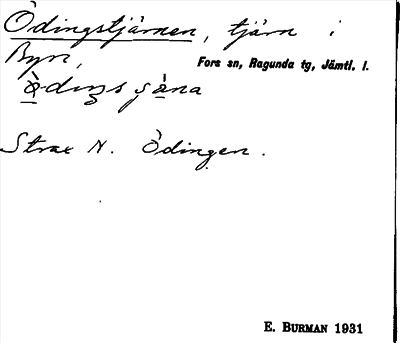 Ödingstjärnen, tjärn i
Byn,
Fors sn, Ragunda tg, Jämtl. l.
Strax N. Ödingen.
E. BURMAN 1931